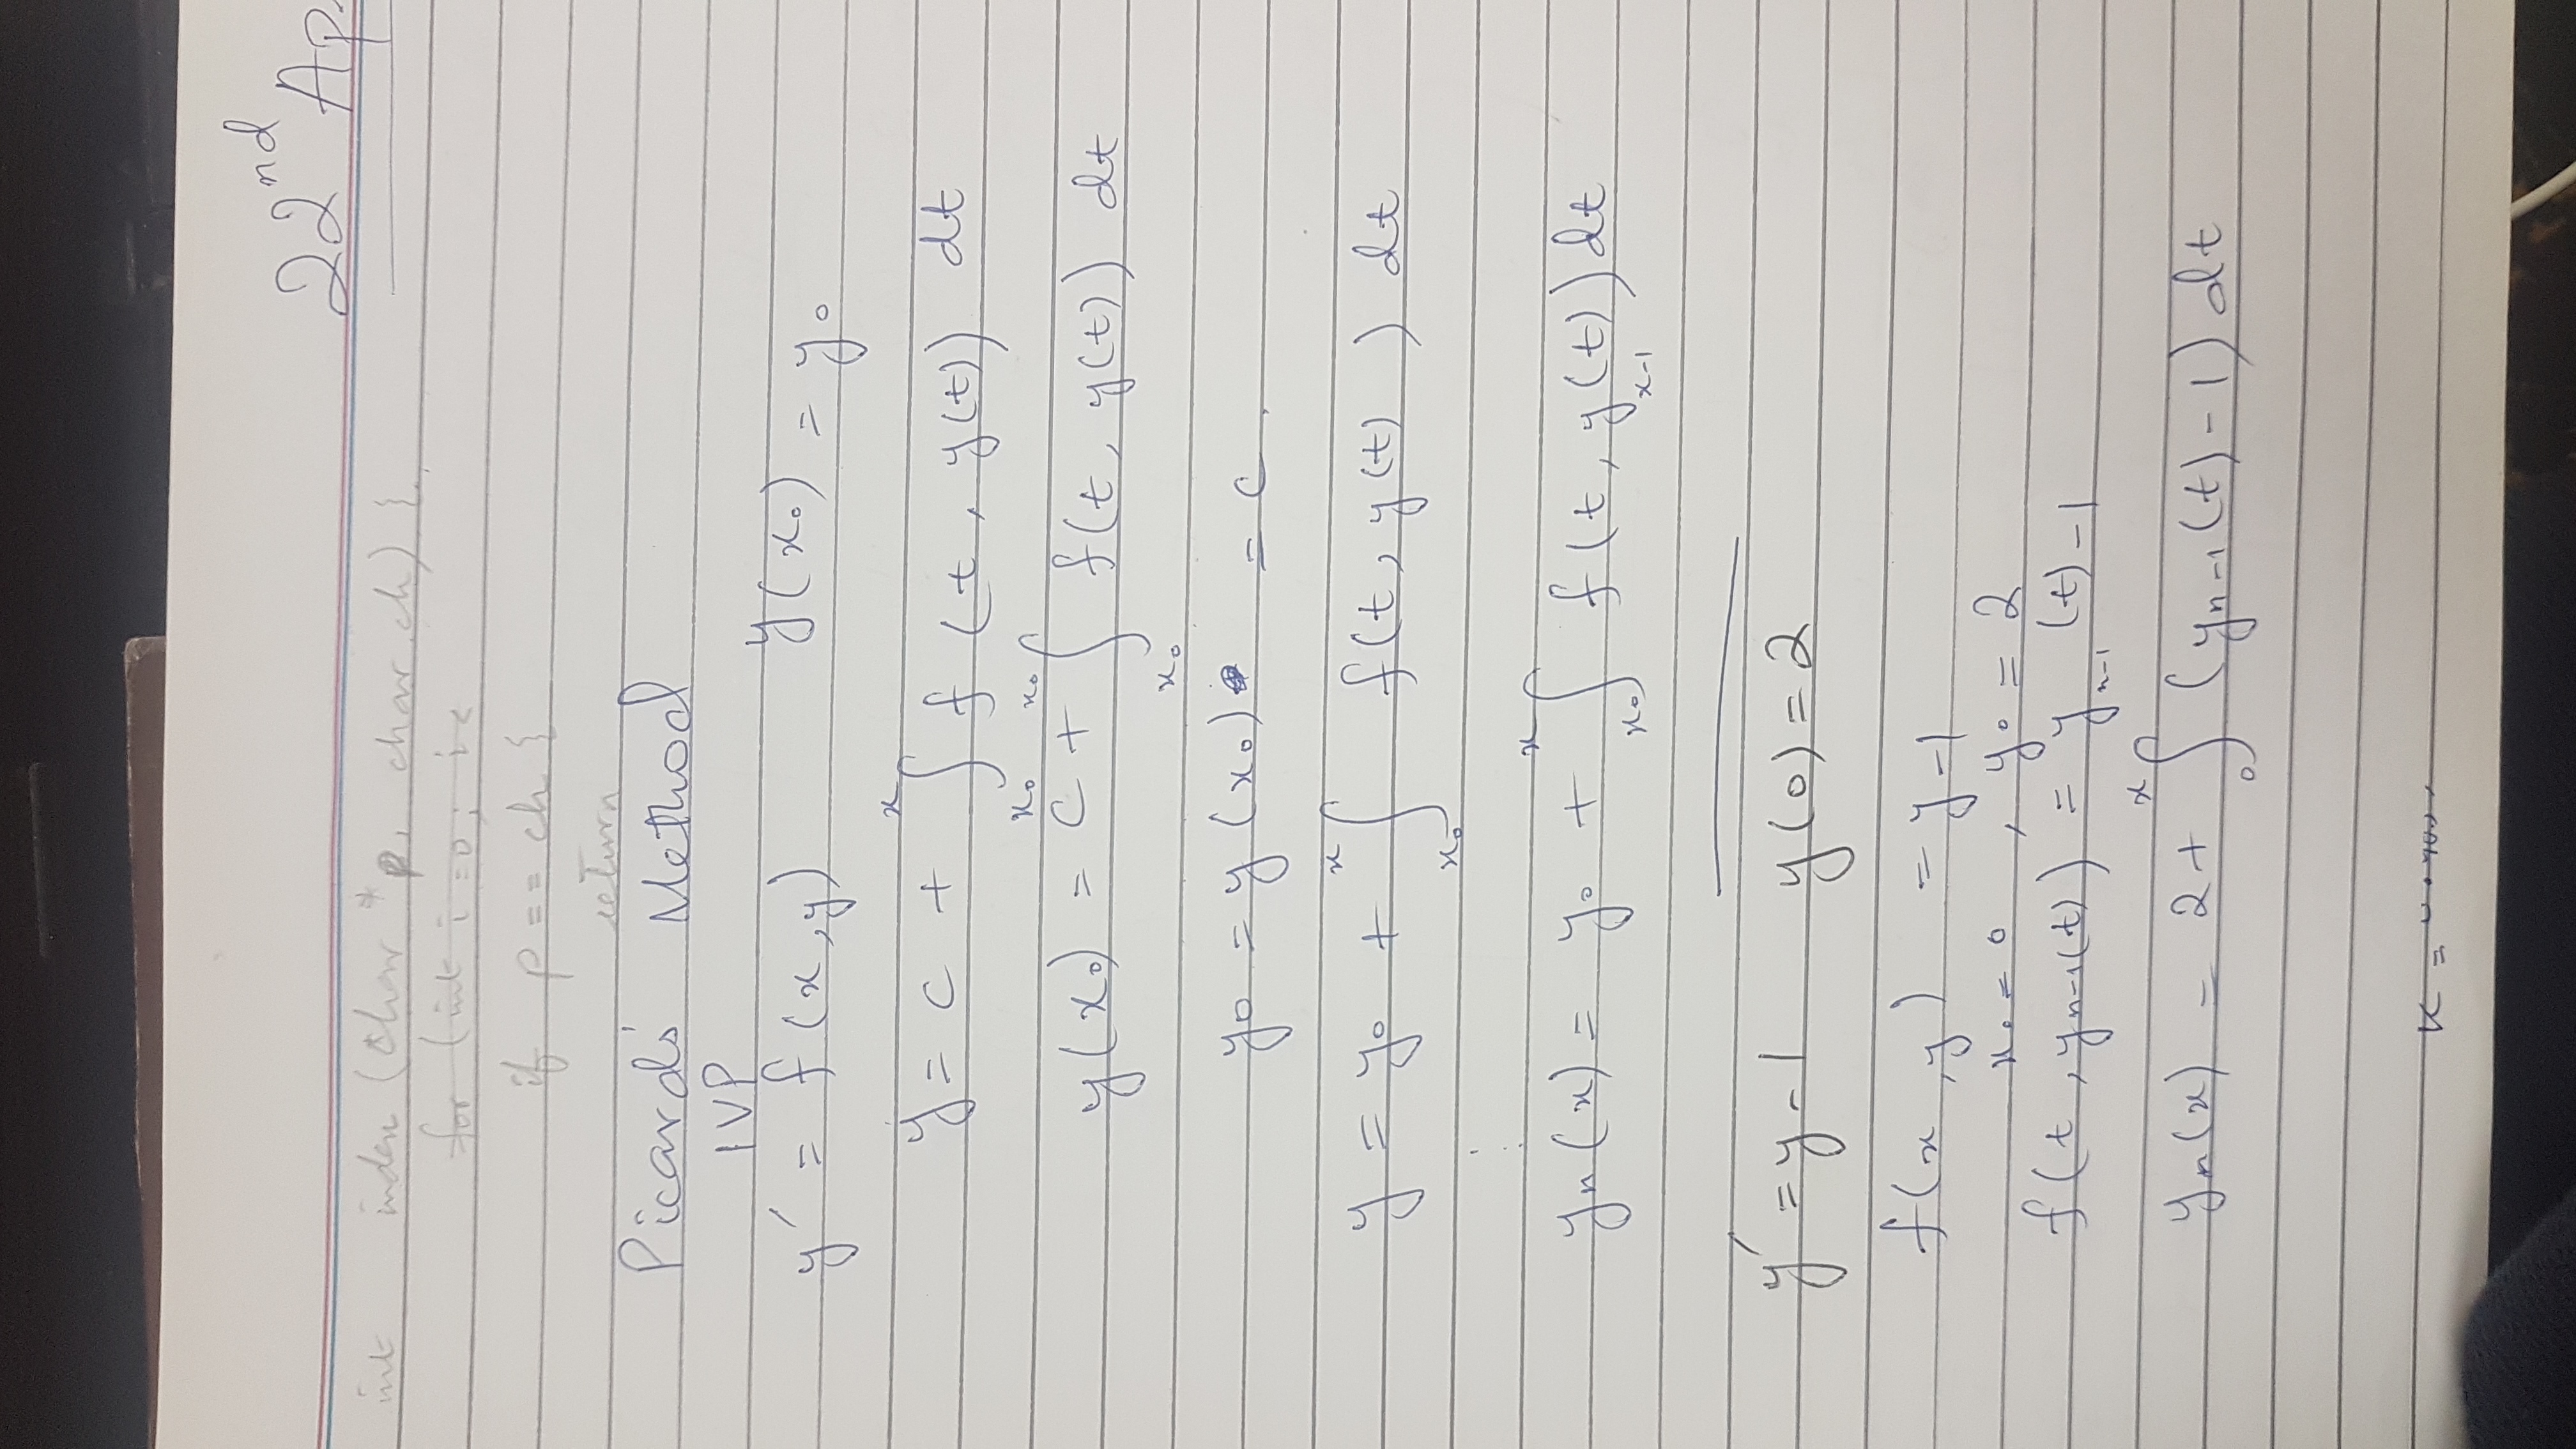 22nd Ap
int index (char *p, char ch) {
for (int i=0; i<
if p == ch {
return
Picard's Method
IVP
y' = f(x,y) y(x₀) = y₀
y = c + ∫_{x₀}^{x} f(t, y(t)) dt
y(x₀) = c + ∫_{x₀}^{x₀} f(t, y(t)) dt
y₀ = y(x₀) = c.
y = y₀ + ∫_{x₀}^{x} f(t, y(t)) dt
⋮
yₙ(x) = y₀ + ∫_{x₀}^{x} f(t, y_{x-1}(t)) dt
y' = y-1 y(0) = 2
f(x,y) = y-1
x₀ = 0, y₀ = 2
f(t, yₙ₋₁(t)) = yₙ₋₁(t)-1
yₙ(x) = 2+ ∫_{0}^{x} (yₙ₋₁(t)-1) dt